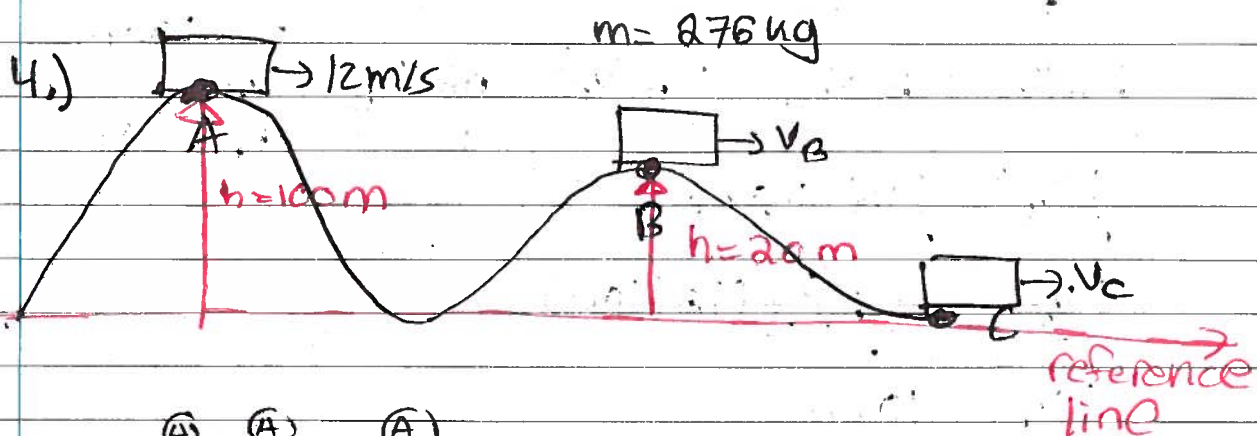 m= 276 kg
4.)
→ 12 m/s
A
h=100m
→ VB
B
h=20m
→ VC
C
reference
line
(A) (A) (A)